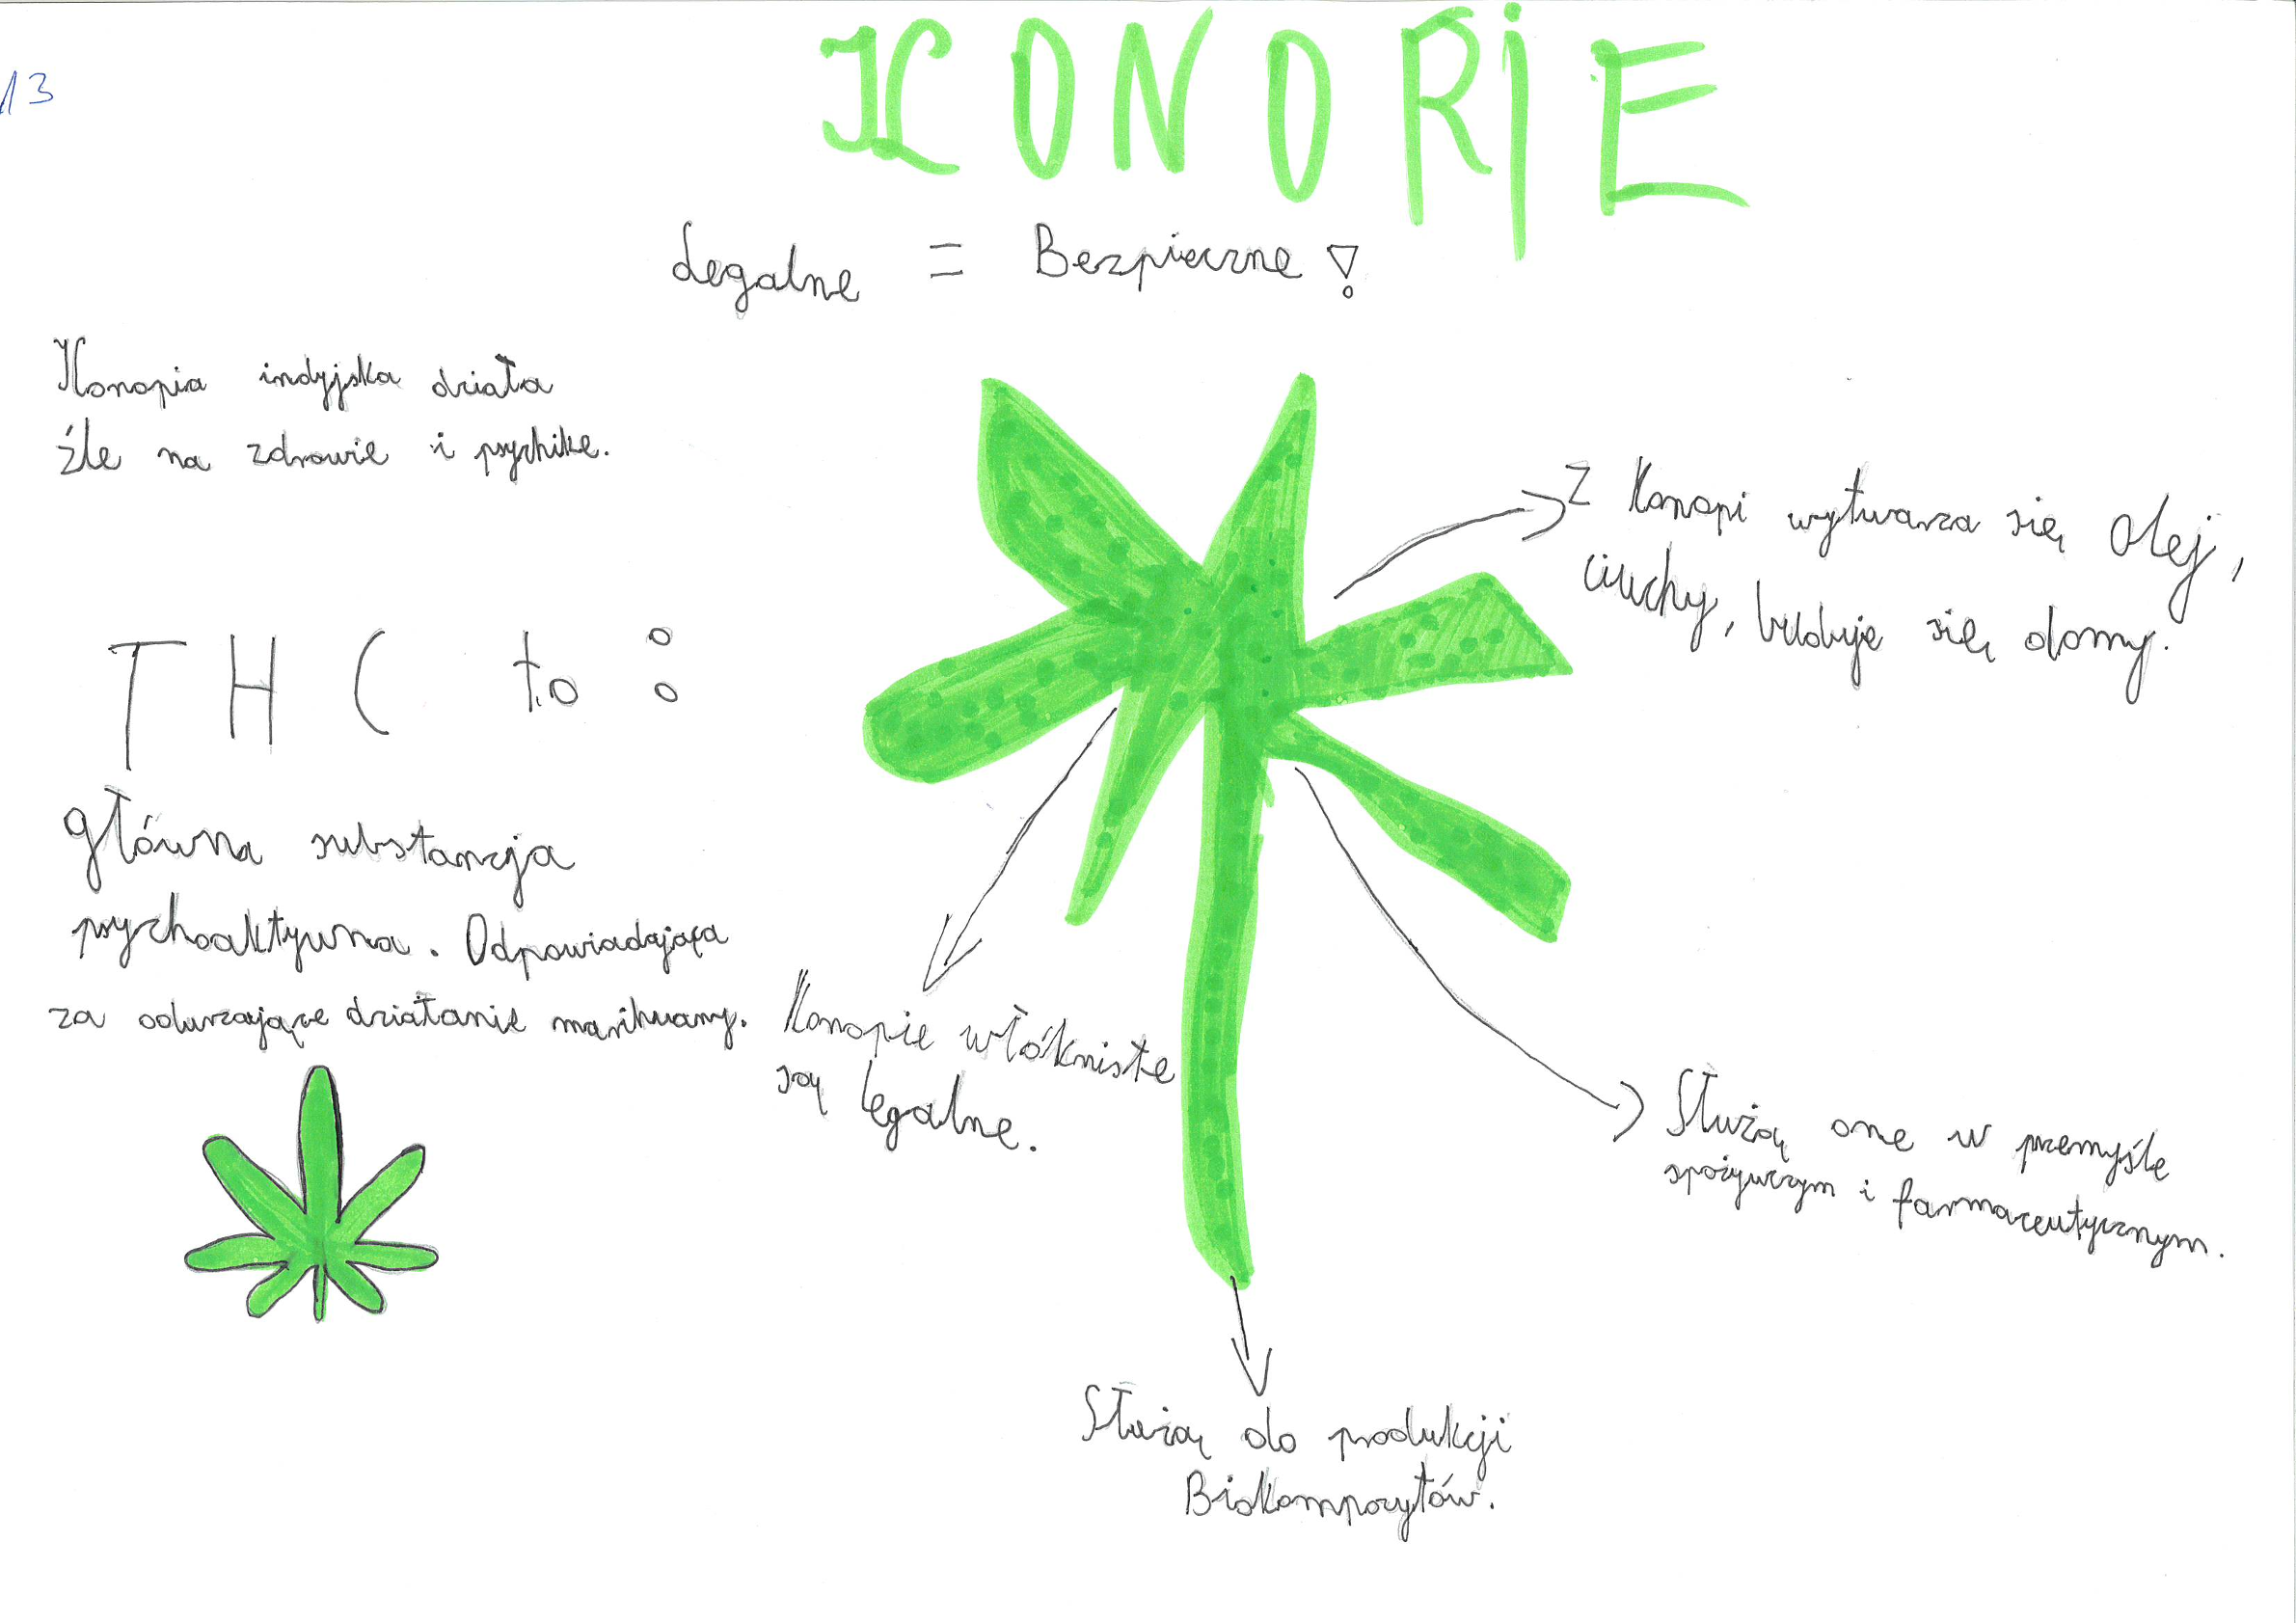 13
KONOPIE
Legalne = Bezpieczne!
Konopia indyjska działa
źle na zdrowie i psychike.
THC to:
główna substancja
psychoaktywna. Odpowiadająca
za odurzające działanie marihuany.
Z Konopi wytwarza się Olej,
ciuchy, buduje się domy.
Konopie włókniste
są legalne.
Służą one w przemyśle
spożywczym i farmaceutycznym.
Służą do produkcji
Biokompozytów.